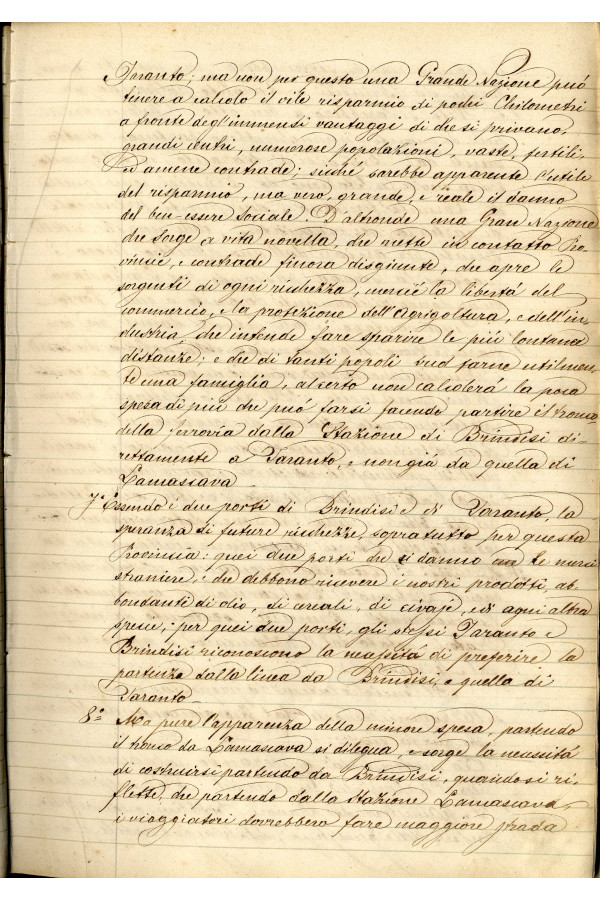 Taranto; ma non per questo una Grande Nazione può
tenere a calcolo il vile risparmio di pochi Chilometri
a fronte degl'immensi vantaggi di che si privano,
grandi centri, numerose popolazioni, vaste, fertili,
ed amene contrade; sicché sarebbe apparente l'utile
del risparmio, ma vero, grande, e reale il danno
del ben-essere Sociale. D'altronde una Gran Nazione
che sorge a vita novella, che mette in contatto Pro
vincie, e contrade finora disgiunte, che apre le
sorgenti di ogni ricchezza, mercé la libertà del
commercio, e la protezione dell'Agrigoltura, e dell'in
dustria, che intende fare sparire le più lontane
distanze; e che di tanti popoli vuol farne utilmen
te una famiglia, al certo non calcolerà la poca
spesa di più che può farsi facendo partire il tronco
della ferrovia dalla Stazione di Brindisi di-
rettamente a Taranto, e non già da quella di
Camascava
7° Essendo i due porti di Brindisi e di Taranto, la
speranza di future ricchezze, sopratutto per questa
Provincia: quei due porti che si danno le merci
straniere, e che debbono ricevere i nostri prodotti, ab-
bondanti di olio, di cereali, di civaje, e di agni altra
specie; per quei due porti, gli stessi Taranto e
Brindisi riconoscono la necessità di preferire la
partenza dalla linea da Brindisi, e quella di
Taranto
8° Ma pure l'apparenza della minore spesa, partendo
il tronco da Camascava si dilegua, e sorge la necessità
di costruirsi partendo da Brindisi, quando si ri-
flette, che partendo dalla Stazione Camascava,
i viaggiatori dovrebbero fare maggiore strada